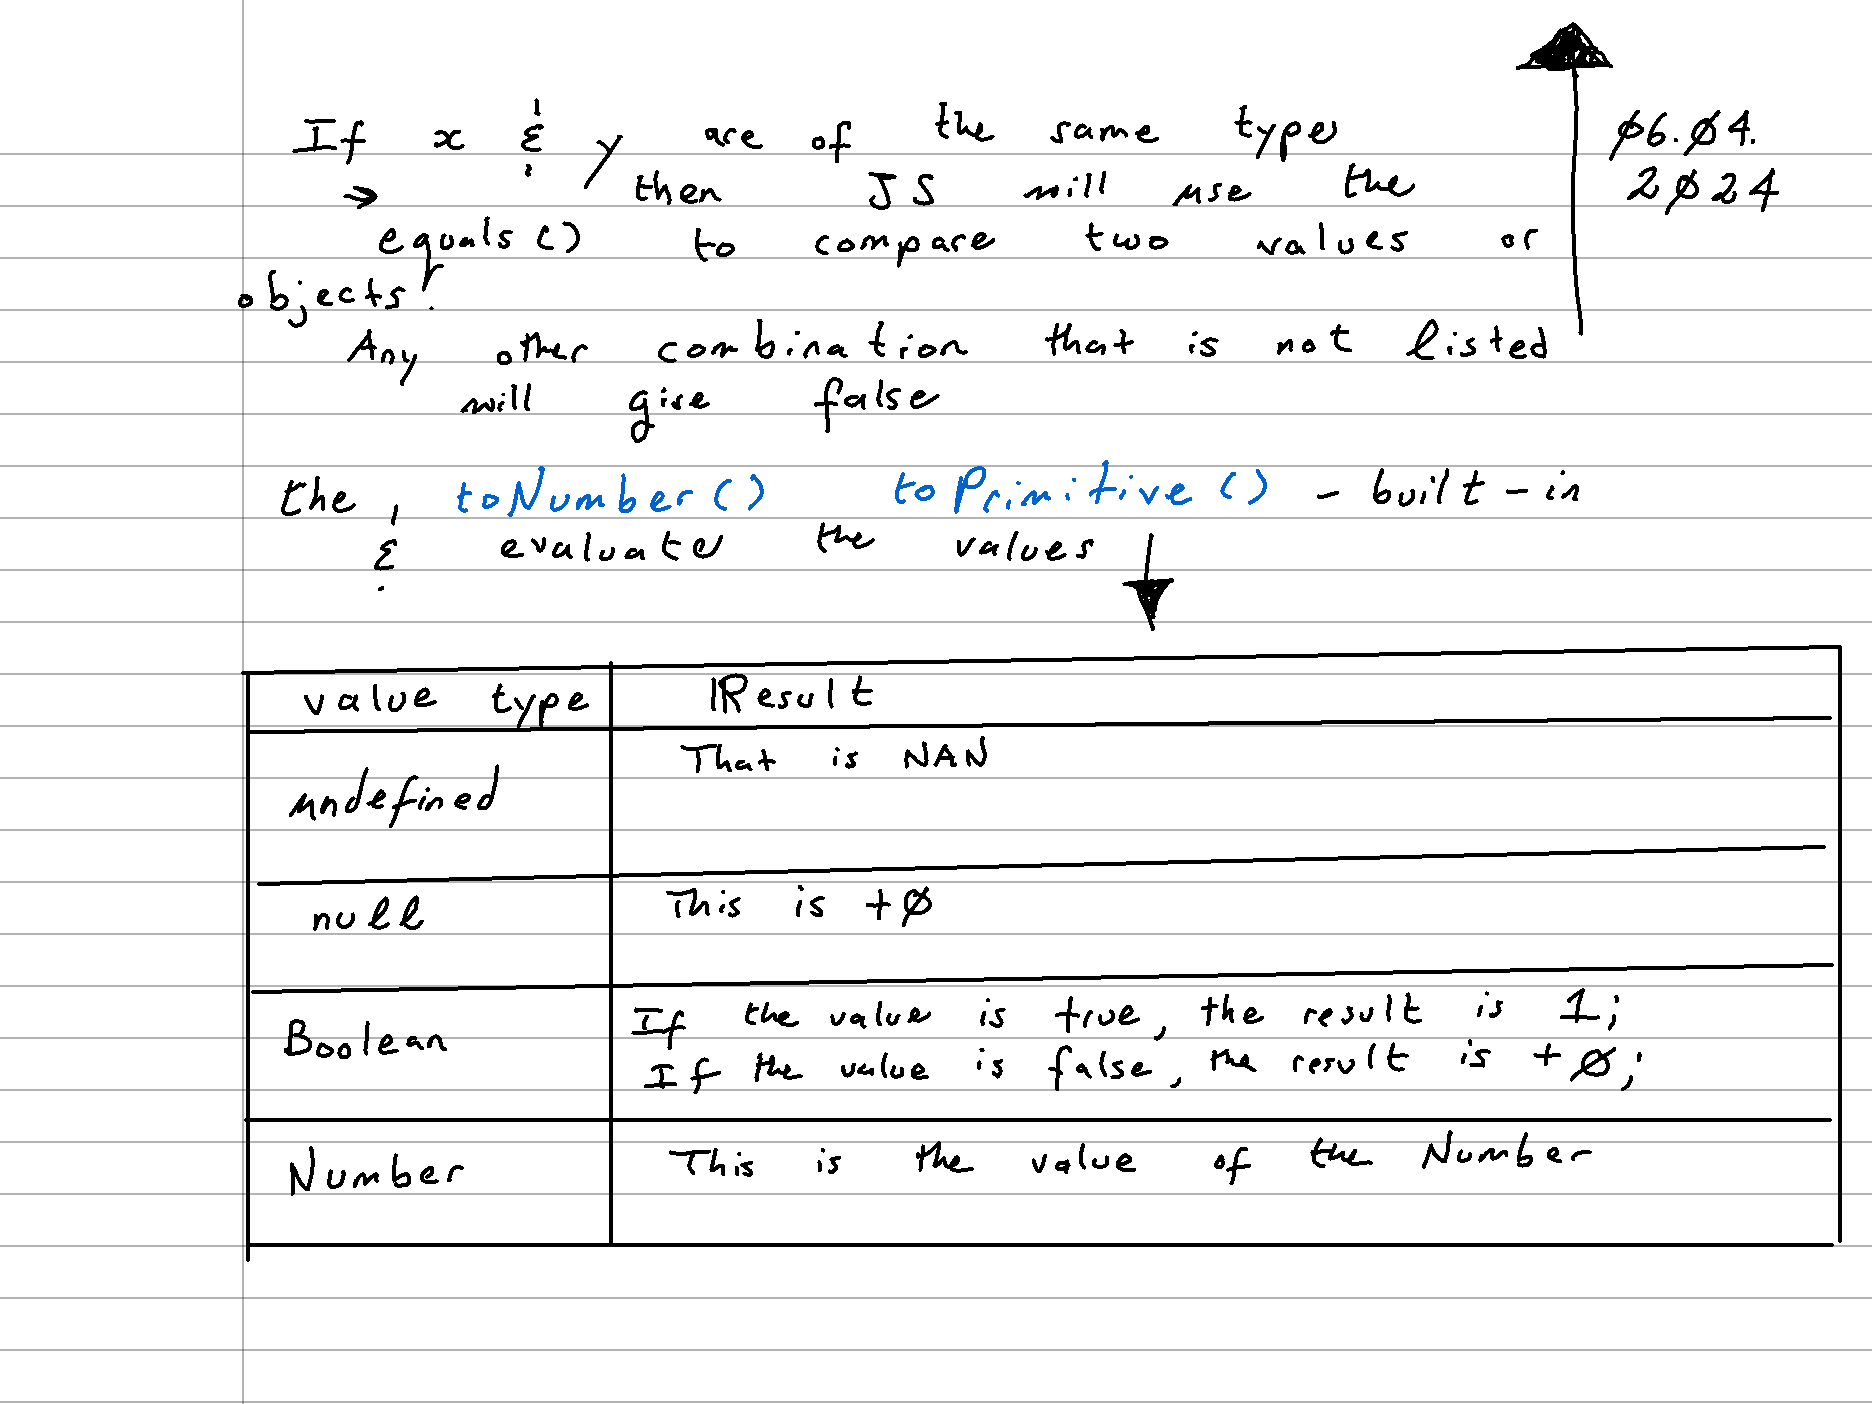 If x & y are of the same type
→ then JS will use the
equals() to compare two values or
objects!
06.04.
2024
Any other combination that is not listed
will give false
the , toNumber() toPrimitive() - built-in
& evaluate the values
value type Result
undefined That is NAN
null This is +0
Boolean If the value is true, the result is 1;
If the value is false, the result is +0;
Number This is the value of the Number